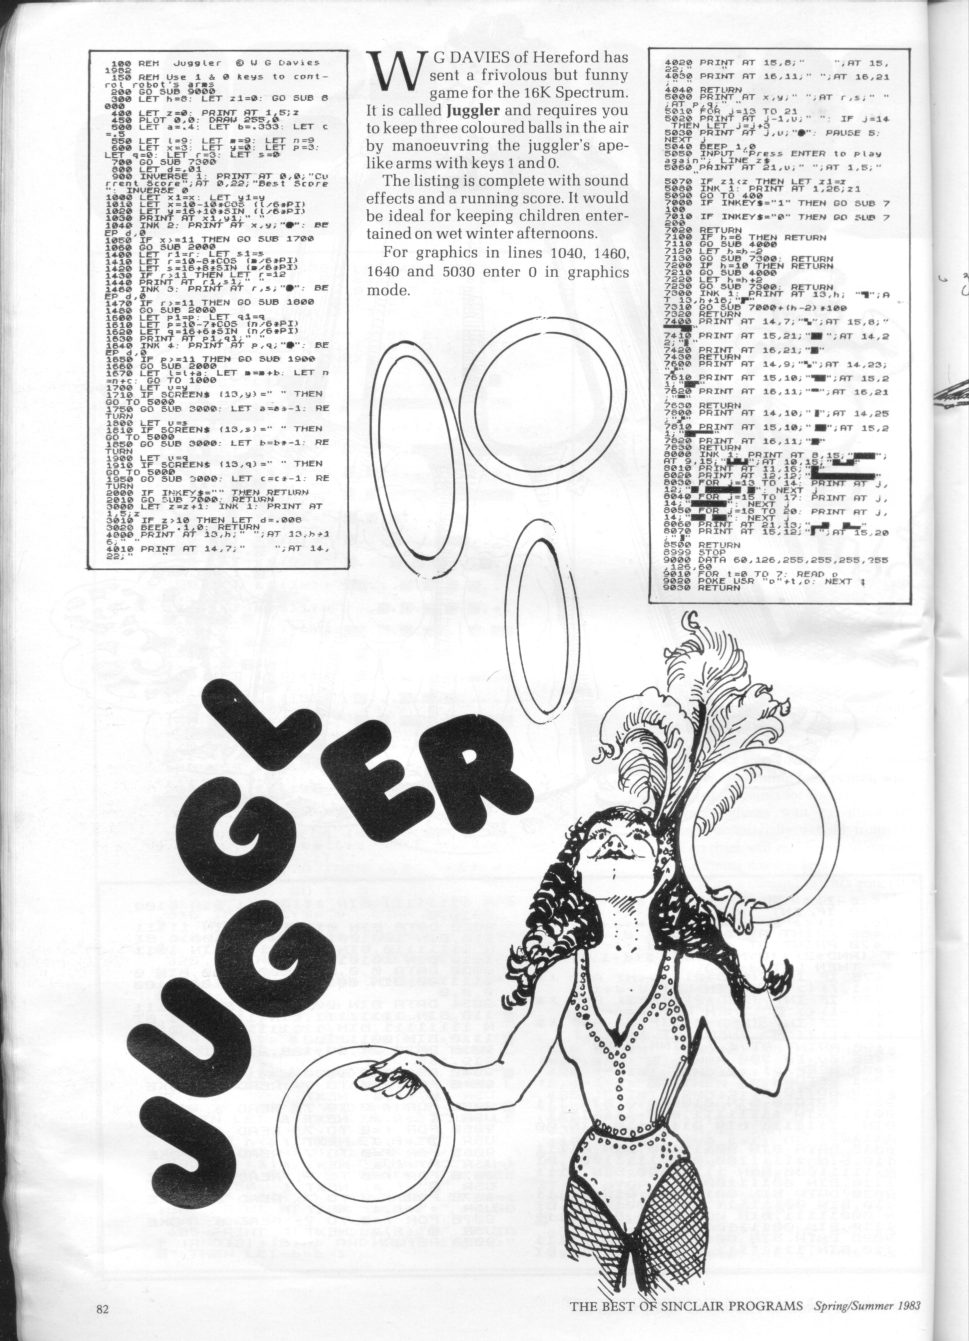 100 REM Juggler © W G Davies
1982
150 REM Use 1 & 0 keys to cont-
rol robot's arms
200 GO SUB 9000
300 LET h=8: LET z1=0: GO SUB 8
000
400 LET z=0: PRINT AT 1,5;z
450 PLOT 0,0: DRAW 255,0
500 LET a=.4: LET b=.333: LET c
=.5
550 LET l=9: LET m=9: LET n=9
600 LET x=3: LET y=0: LET p=3:
LET q=0: LET r=3: LET s=0
700 GO SUB 7300
800 LET d=.01
900 INVERSE 1: PRINT AT 0,0;"Cu
rrent Score";AT 0,22;"Best Score
": INVERSE 0
1000 LET x1=x: LET y1=y
1010 LET x=10-10*COS (l/6*PI)
1020 LET y=16+10*SIN (l/6*PI)
1030 PRINT AT x1,y1;" "
1040 INK 2: PRINT AT x,y;"●": BE
EP d,0
1050 IF x>=11 THEN GO SUB 1700
1060 GO SUB 2000
1400 LET r1=r: LET s1=s
1410 LET r=10-8*COS (m/6*PI)
1420 LET s=16+8*SIN (m/6*PI)
1430 IF r>11 THEN LET r=12
1440 PRINT AT r1,s1;" "
1460 INK 3: PRINT AT r,s;"●": BE
EP d,0
1470 IF r>=11 THEN GO SUB 1800
1480 GO SUB 2000
1600 LET p1=p: LET q1=q
1610 LET p=10-7*COS (n/6*PI)
1620 LET q=16+6*SIN (n/6*PI)
1630 PRINT AT p1,q1;" "
1640 INK 4: PRINT AT p,q;"●": BE
EP d,0
1650 IF p>=11 THEN GO SUB 1900
1660 GO SUB 2000
1670 LET l=l+a: LET m=m+b: LET n
=n+c: GO TO 1000
1700 LET u=y
1710 IF SCREEN$ (13,y)=" " THEN
GO TO 5000
1750 GO SUB 3000: LET a=a*-1: RE
TURN
1800 LET u=s
1810 IF SCREEN$ (13,s)=" " THEN
GO TO 5000
1850 GO SUB 3000: LET b=b*-1: RE
TURN
1900 LET u=q
1910 IF SCREEN$ (13,q)=" " THEN
GO TO 5000
1950 GO SUB 3000: LET c=c*-1: RE
TURN
2000 IF INKEY$="" THEN RETURN
2010 GO SUB 7000: RETURN
3000 LET z=z+1: INK 1: PRINT AT
1,5;z
3010 IF z>10 THEN LET d=.008
3020 BEEP .1,0: RETURN
4000 PRINT AT 13,h;" ";AT 13,h+1
6;" "
4010 PRINT AT 14,7;" ";AT 14,
22;" "
W G DAVIES of Hereford has
sent a frivolous but funny
game for the 16K Spectrum.
It is called Juggler and requires you
to keep three coloured balls in the air
by manoeuvring the juggler's ape-
like arms with keys 1 and 0.
The listing is complete with sound
effects and a running score. It would
be ideal for keeping children enter-
tained on wet winter afternoons.
For graphics in lines 1040, 1460,
1640 and 5030 enter 0 in graphics
mode.
4020 PRINT AT 15,8;" ";AT 15,
22;" "
4030 PRINT AT 16,11;" ";AT 16,21
;" "
4040 RETURN
5000 PRINT AT x,y;" ";AT r,s;" "
;AT p,q;" "
5010 FOR j=13 TO 21
5020 PRINT AT j-1,u;" ": IF j=14
THEN LET j=j+3
5030 PRINT AT j,u;"●": PAUSE 5:
NEXT j
5040 BEEP 1,0
5050 INPUT "Press ENTER to play
again"; LINE z$
5060 PRINT AT 21,u;" ";AT 1,5;"
"
5070 IF z1<z THEN LET z1=z
5080 INK 1: PRINT AT 1,26;z1
5090 GO TO 400
7000 IF INKEY$="1" THEN GO SUB 7
100
7010 IF INKEY$="0" THEN GO SUB 7
200
7020 RETURN
7100 IF h=6 THEN RETURN
7110 GO SUB 4000
7120 LET h=h-2
7130 GO SUB 7300: RETURN
7200 IF h=10 THEN RETURN
7210 GO SUB 4000
7220 LET h=h+2
7230 GO SUB 7300: RETURN
7300 INK 1: PRINT AT 13,h;" ";A
T 13,h+16;" "
7310 GO SUB 7000+(h-2)*100
7320 RETURN
7400 PRINT AT 14,7;" ";AT 15,8;"
"
7410 PRINT AT 15,21;" ";AT 14,2
2;" "
7420 PRINT AT 16,21;" "
7430 RETURN
7600 PRINT AT 14,9;" ";AT 14,23;
" "
7610 PRINT AT 15,10;" ";AT 15,2
1;" "
7620 PRINT AT 16,11;" ";AT 16,21
;" "
7630 RETURN
7800 PRINT AT 14,10;" ";AT 14,25
;" "
7810 PRINT AT 15,10;" ";AT 15,2
1;" "
7820 PRINT AT 16,11;" "
7830 RETURN
8000 INK 1: PRINT AT 8,15;" ";
AT 9,15;" ";AT 10,15;" "
8010 PRINT AT 11,16;" "
8020 PRINT AT 12,12;" "
8030 FOR j=13 TO 14: PRINT AT j,
12;" ": NEXT j
8040 FOR j=15 TO 17: PRINT AT j,
14;" ": NEXT j
8050 FOR j=18 TO 20: PRINT AT j,
14;" ": NEXT j
8060 PRINT AT 21,13;" "
8070 PRINT AT 15,12;" ";AT 15,20
;" "
8500 RETURN
8999 STOP
9000 DATA 60,126,255,255,255,255
,126,60
9010 FOR t=0 TO 7: READ o
9020 POKE USR "o"+t,o: NEXT t
9030 RETURN
JUGGLER
82
THE BEST OF SINCLAIR PROGRAMS Spring/Summer 1983